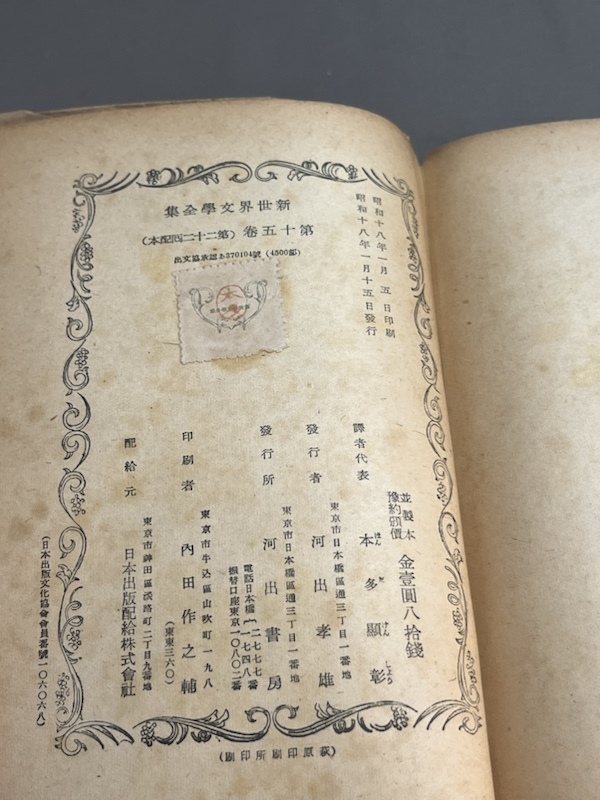 新世界文學全集
第十五卷 (第二十二回配本)
出文協承認あ370104號 (4500部)
昭和十八年一月 五 日印刷
昭和十八年一月十五日發行
並製本
豫約頒價 金壹圓八拾錢
譯者代表 本多顯彰
ほん だ けん しやう
東京市日本橋區通三丁目一番地
發行者 河出孝雄
東京市日本橋區通三丁目一番地
發行所 河出書房
電話日本橋 二七七七番 一七四八番
振替口座東京一〇八〇二番
東京市牛込區山吹町一九八
印刷者 內田作之輔
(東東三六〇)
東京市神田區淡路町二丁目九番地
配給元 日本出版配給株式會社
(日本出版文化協會會員番號一〇六〇六八)
(萩原印刷所印刷)